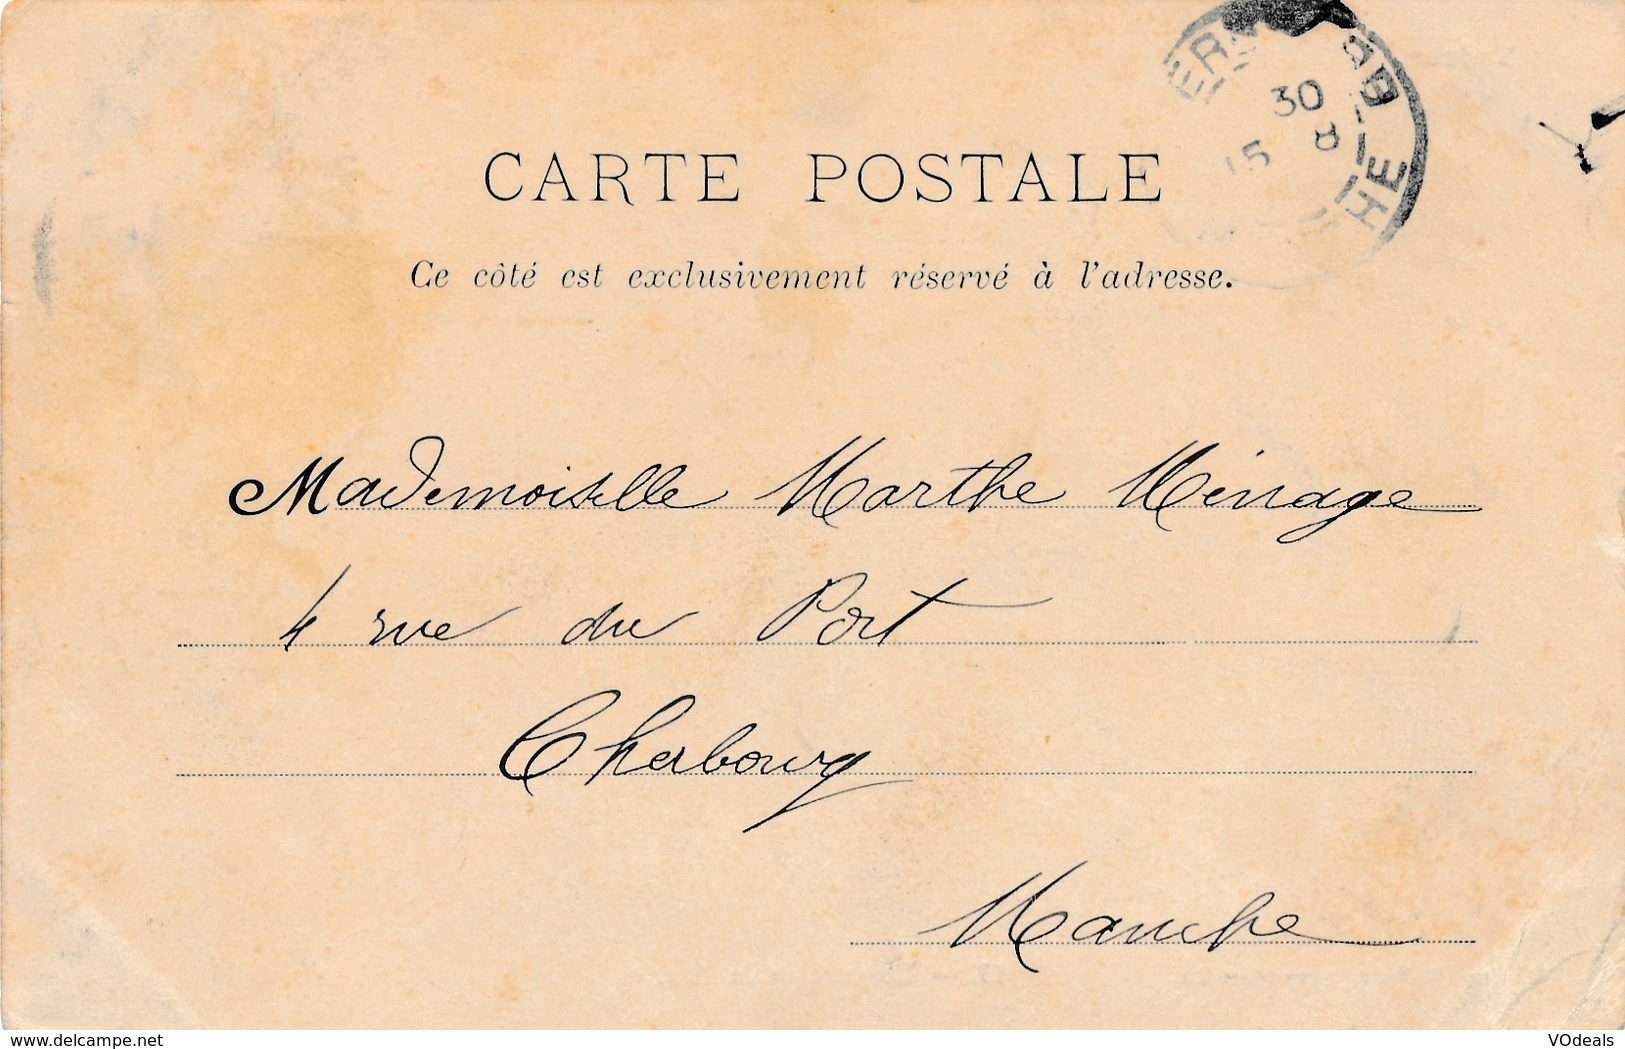 30
15 8
HE
CARTE POSTALE
Ce côté est exclusivement réservé à l'adresse.
Mademoiselle Marthe Ménage
4 rue du Port
Cherbourg
Manche
www.delcampe.net
VOdeals